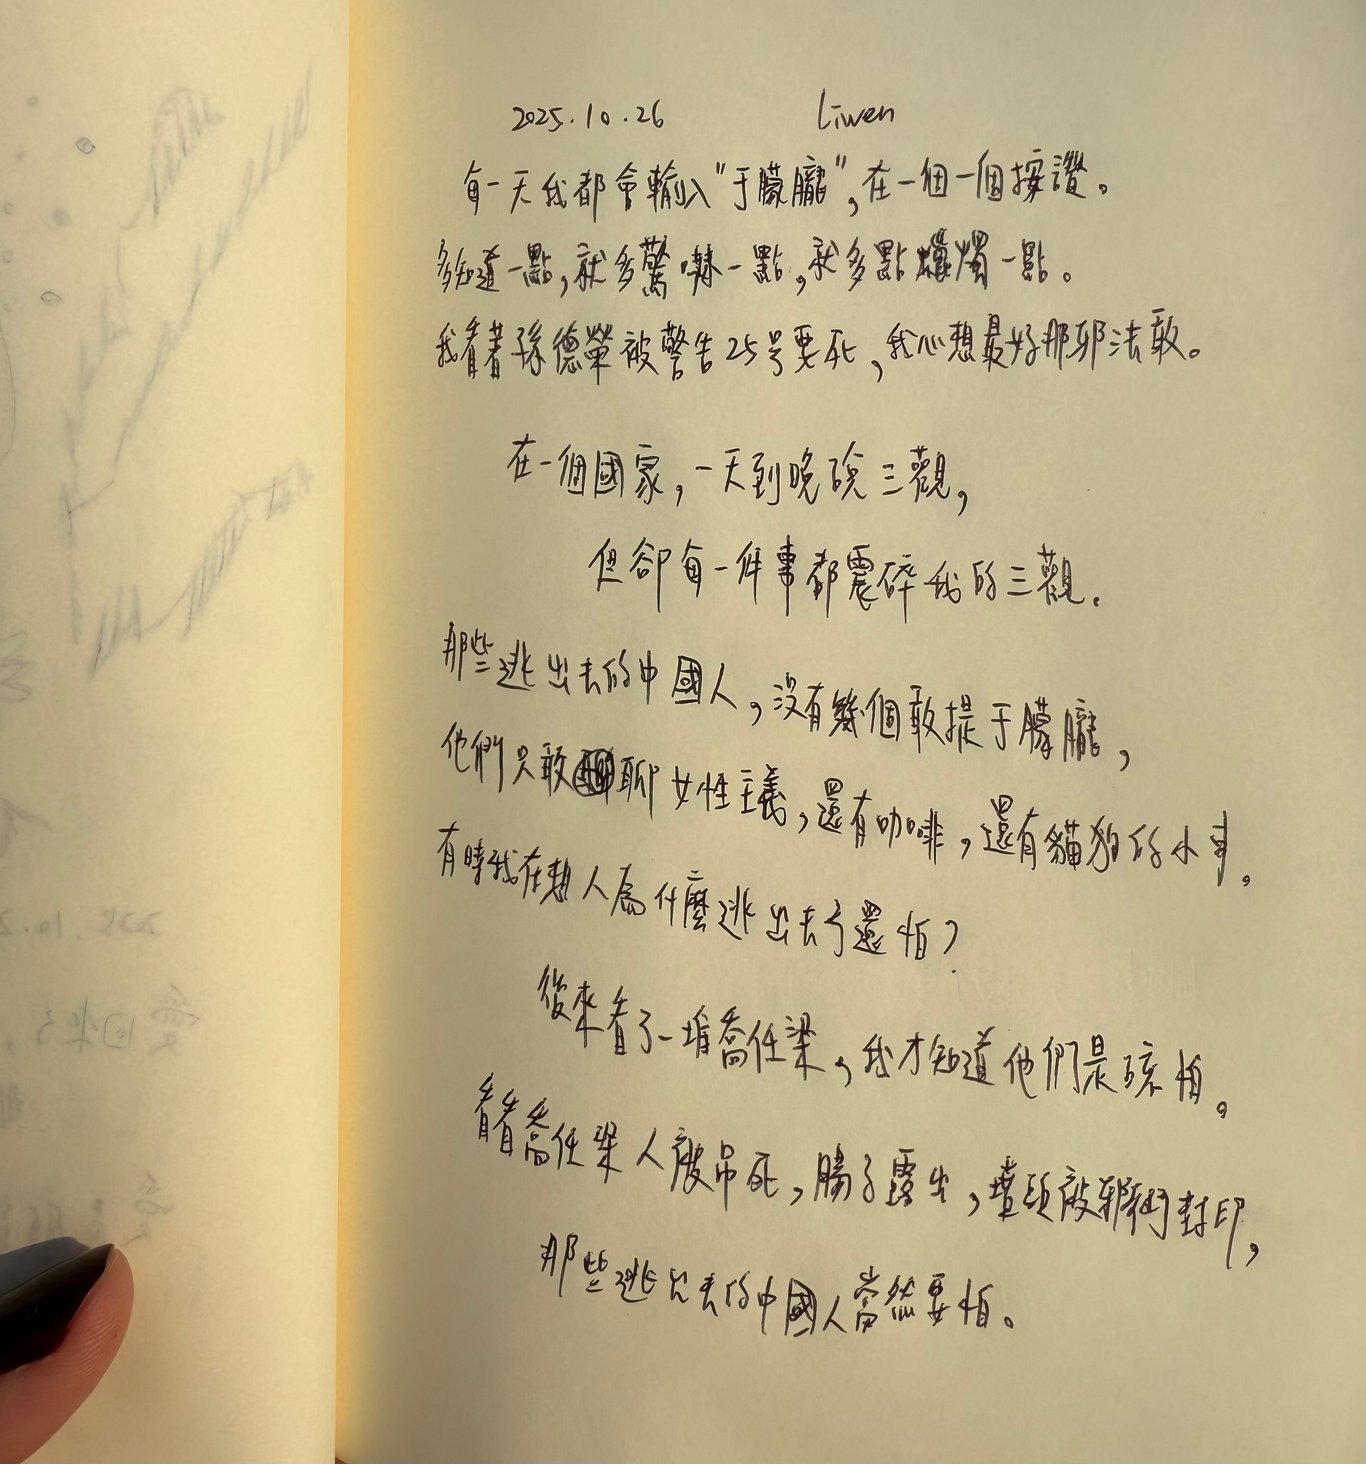 2025.10.26 Liwen
每一天我都會輸入"于朦朧",在一個一個按讚。
多知道一點,就多驚嚇一點,就多點蠟燭一點。
我看著孫德榮被警告25号要死,我心想最好那邪法敢。
在一個國家,一天到晚說三觀,
但卻每一件事都震碎我的三觀.
那些逃出去的中國人,沒有幾個敢提于朦朧,
他們只敢聊女性主義,還有咖啡,還有貓狗的小事。
有時我在想人為什麼逃出去了還怕?
後來看了一堆喬任梁,我才知道他們是該怕。
看看喬任梁人被吊死,腸子露出,墳頭被邪術封印,
那些逃出去的中國人當然要怕。
2025.10.2
回來了,